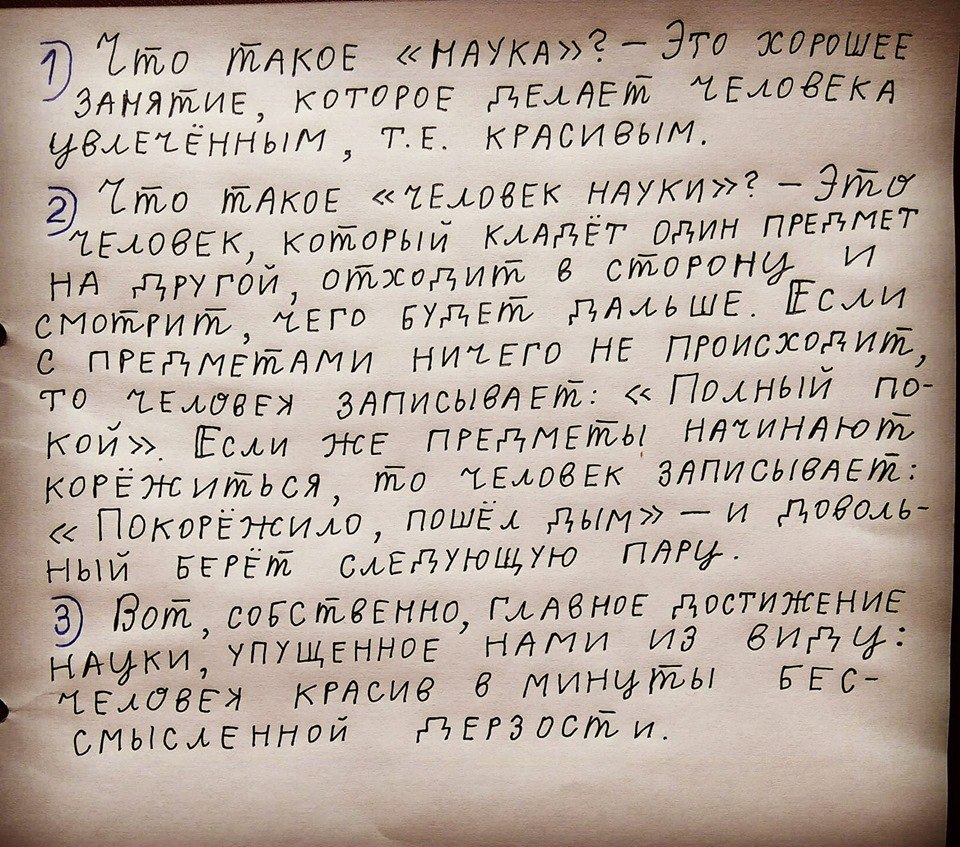 1) Что такое «наука»? – Это хорошее
занятие, которое делает человека
увлечённым, т.е. красивым.
2) Что такое «человек науки»? – Это
человек, который кладёт один предмет
на другой, отходит в сторону и
смотрит, чего будет дальше. Если
с предметами ничего не происходит,
то человек записывает: «Полный по-
кой». Если же предметы начинают
корёжиться, то человек записывает:
«Покорёжило, пошёл дым» – и доволь-
ный берёт следующую пару.
3) Вот, собственно, главное достижение
науки, упущенное нами из виду:
человек красив в минуты бес-
смысленной дерзости.